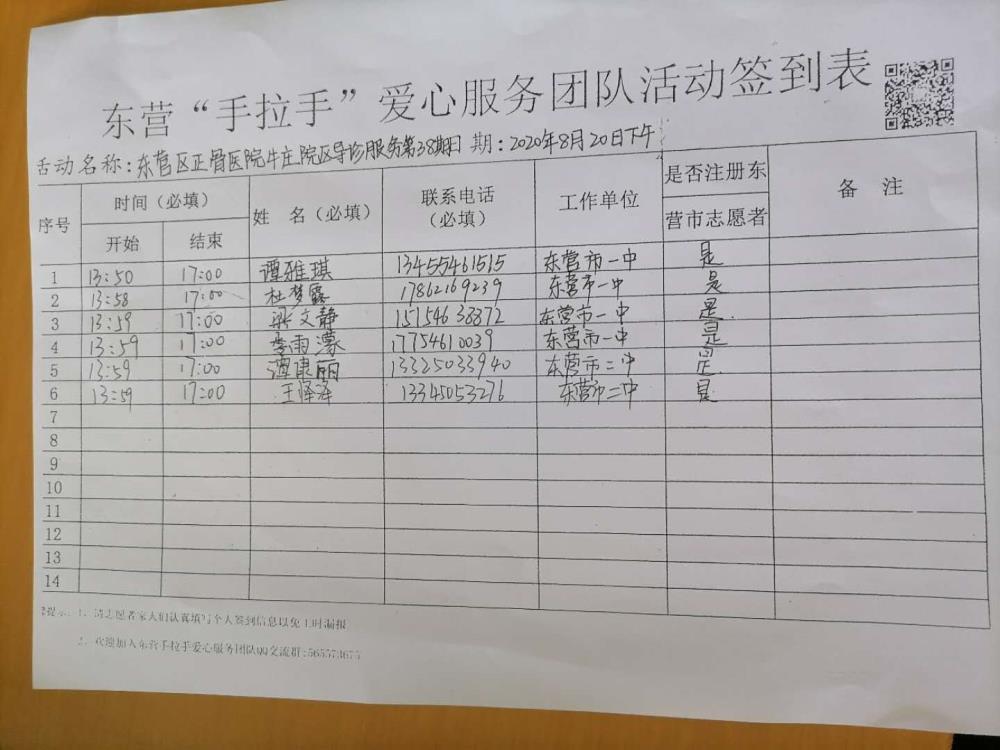 东营“手拉手”爱心服务团队活动签到表
活动名称:东营区正骨医院牛庄院区导诊服务第38期日期:2020年8月20日下午
序号 时间（必填） 姓 名（必填） 联系电话（必填） 工作单位 是否注册东营市志愿者 备 注
开始 结束
1 13:50 17:00 谭雅琪 13455461515 东营市一中 是
2 13:58 17:00 杜梦露 17862169239 东营市一中 是
3 13:59 17:00 梁文静 15154638872 东营市一中 是
4 13:59 17:00 李雨濛 17754610039 东营市一中 是
5 13:59 17:00 谭康丽 13325033940 东营市二中 是
6 13:59 17:00 王泽 13345053276 东营市二中 是
7
8
9
10
11
12
13
14
提示：1、请志愿者家人们认真填写个人签到信息以免工时漏报
2、欢迎加入东营手拉手爱心服务团队QQ交流群:565573675